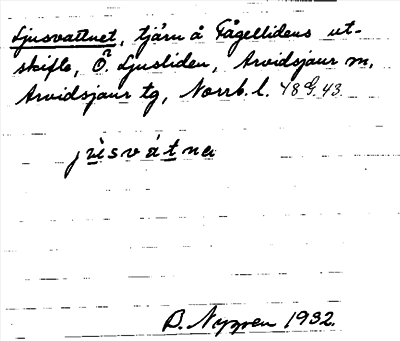 Ljusvattnet, tjärn å Fågellidens ut-
skifte, Ö. Ljusliden, Arvidsjaur m,
Arvidsjaur tg, Norrb. l. 48 G. 43.
jùsvátna
B. Nygren 1932.